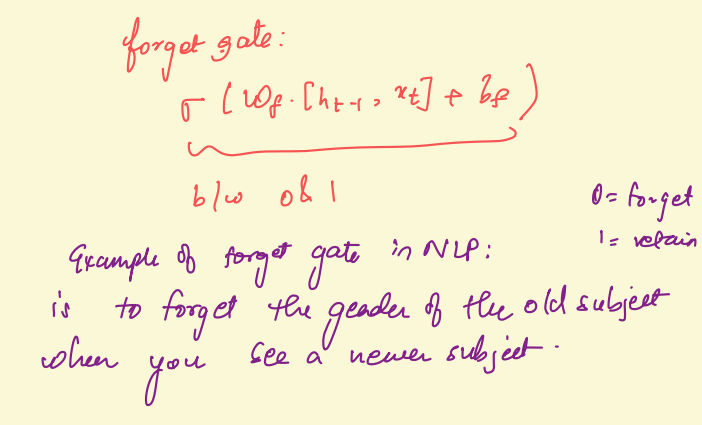 forget gate:
σ ( W_f · [h_{t-1}, x_t] + b_f )
b/w 0 & 1
0 = forget
1 = retain
Example of forget gate in NLP:
is to forget the gender of the old subject
when you see a newer subject.